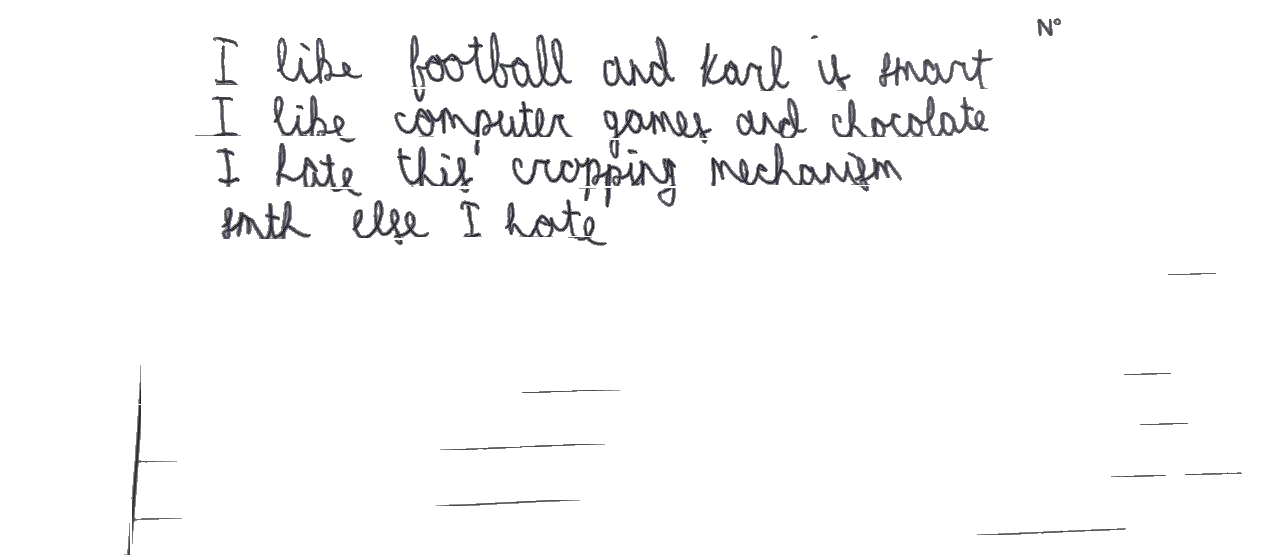 N°
I like football and Karl is smart
I like computer games and chocolate
I hate this cropping mechanism
smth else I hate